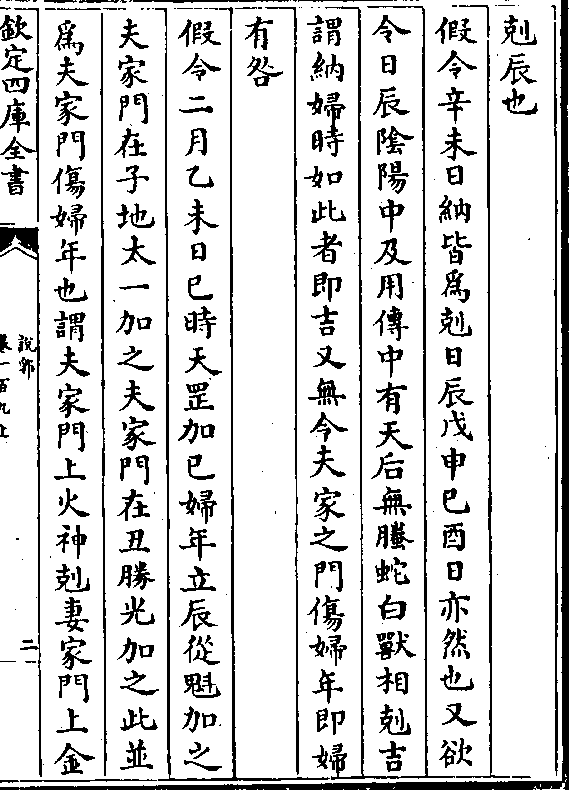 剋辰也
假令辛未日納皆爲剋日辰戊申已酉日亦然也又欲
令日辰陰陽中及用傳中有天后無螣蛇白獸相剋吉
謂納婦時如此者即吉又無今夫家之門傷婦年即婦
有咎
假令二月乙未日巳時天罡加巳婦年立辰從魁加之
夫家門在子地太一加之夫家門在丑勝光加之此並
爲夫家門傷婦年也謂夫家門上火神剋妻家門上金
欽定四庫全書
說郛
卷一百九上
二